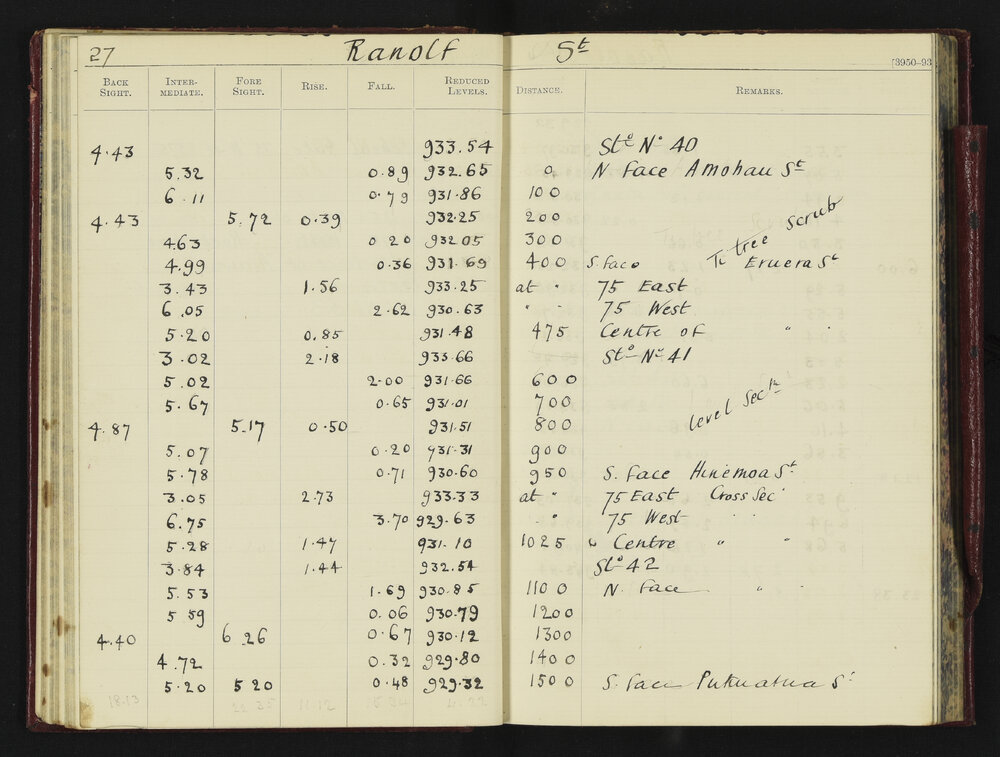 27 Ranolf St
[3950-93
BACK SIGHT. INTER-MEDIATE. FORE SIGHT. RISE. FALL. REDUCED LEVELS. DISTANCE. REMARKS.
4.43 933.54 Stn No 40
5.32 0.89 932.65 0 N Face Amohau St
6.11 0.79 931.86 100
4.43 5.72 0.39 932.25 200
4.63 0 20 932.05 300 Ti tree scrub
4.99 0.36 931.69 400 S. face Eruera St
3.43 1.56 933.25 at " 75 East
6.05 2.62 930.63 " " 75 West
5.20 0.85 931.48 475 Centre of " "
3.02 2.18 933.66 Stn No 41
5.02 2.00 931.66 600
5.67 0.65 931.01 700
4.87 5.17 0.50 931.51 800 level Sectn
5.07 0.20 931.31 900
5.78 0.71 930.60 950 S. Face Hinemoa St
3.05 2.73 933.33 at " 75 East Cross Sec
6.75 3.70 929.63 " 75 West " "
5.28 1.47 931.10 1025 " Centre " "
3.84 1.44 932.54 Stn 42
5.53 1.69 930.85 1100 N. Face "
5 59 0.06 930.79 1200
4.40 6 26 0.67 930.12 1300
4.72 0.32 929.80 1400
5.20 5 20 0.48 929.32 1500 S. face Pukuatua St